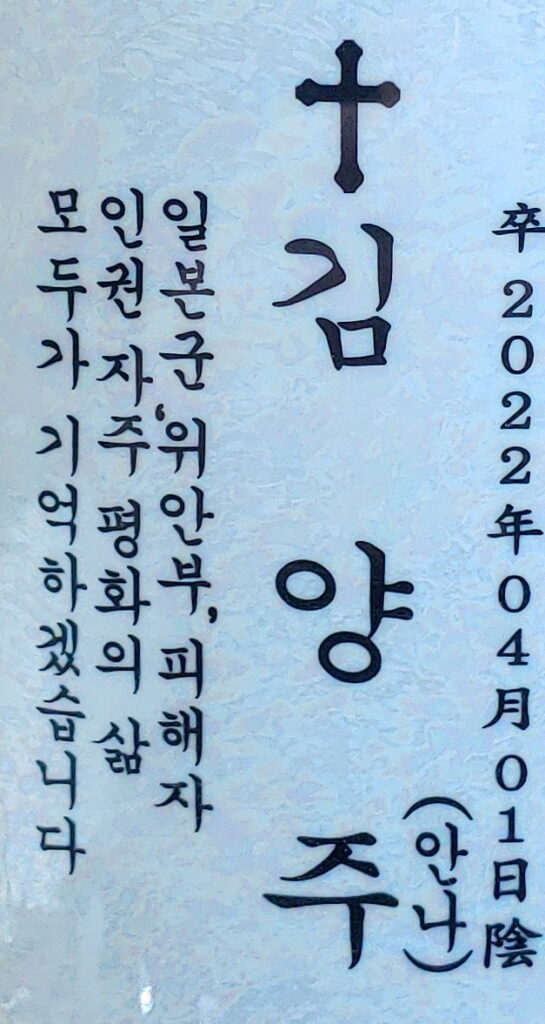 卒 2022年04月01日陰
김양주
(안나)
일본군 '위안부' 피해자
인권 자주 평화의 삶
모두가 기억하겠습니다